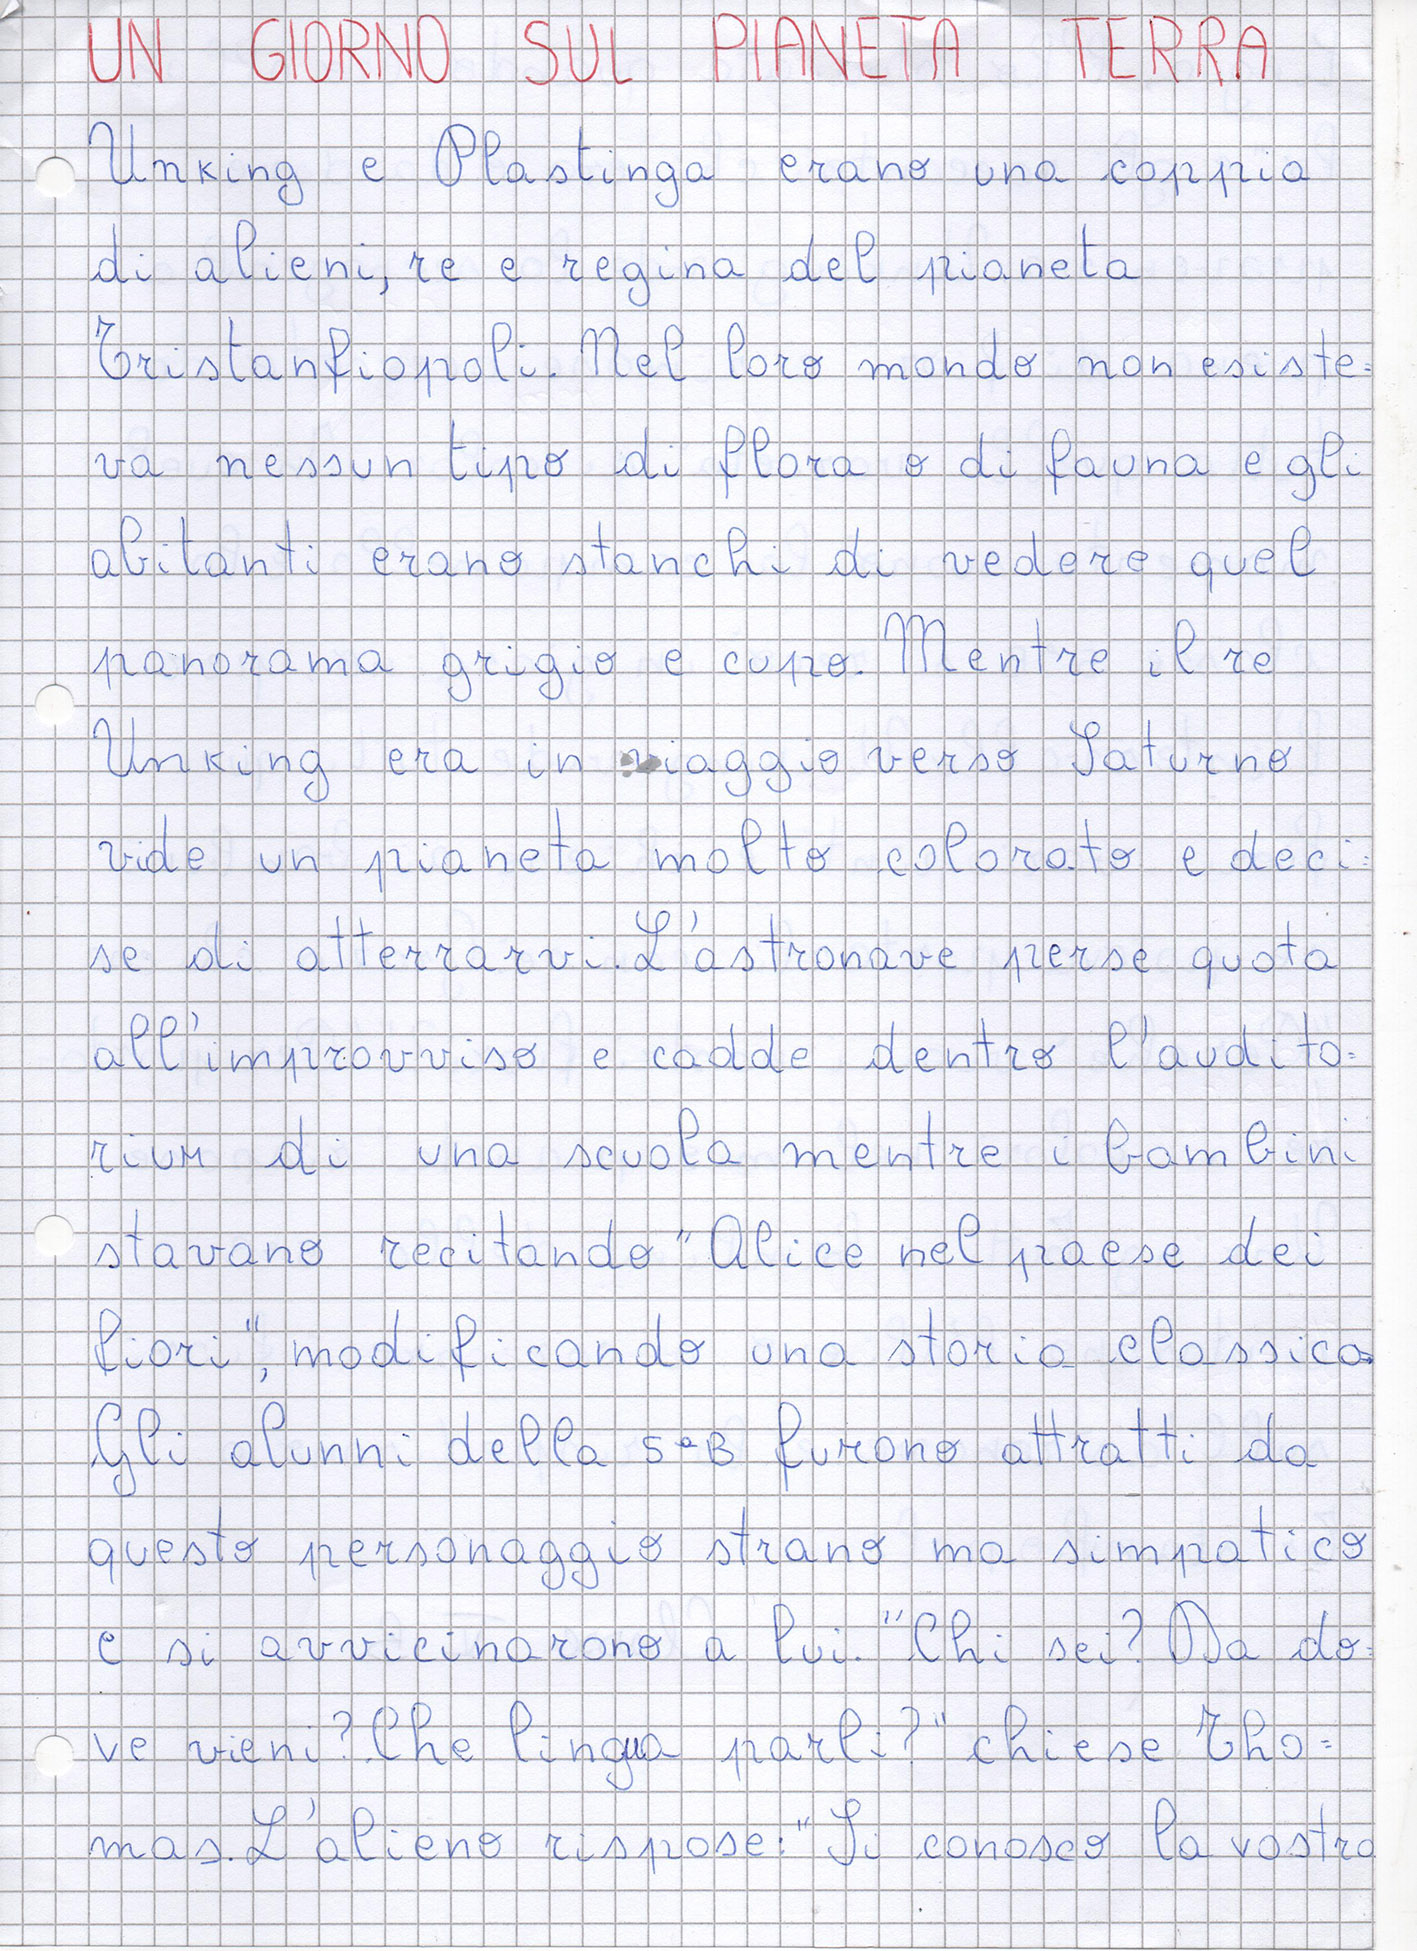 UN GIORNO SUL PIANETA TERRA
Unking e Plastinga erano una coppia
di alieni, re e regina del pianeta
Tristanfiopoli. Nel loro mondo non esiste=
va nessun tipo di flora o di fauna e gli
abitanti erano stanchi di vedere quel
panorama grigio e cupo. Mentre il re
Unking era in viaggio verso Saturno
vide un pianeta molto colorato e deci=
se di atterrarvi. L'astronave perse quota
all'improvviso e cadde dentro l'audito=
rium di una scuola mentre i bambini
stavano recitando "Alice nel paese dei
fiori", modificando una storia classica.
Gli alunni della 5ªB furono attratti da
questo personaggio strano ma simpatico
e si avvicinarono a lui. "Chi sei? Da do=
ve vieni? Che lingua parli?" chiese Tho=
mas. L'alieno rispose: "Si conosco la vostra